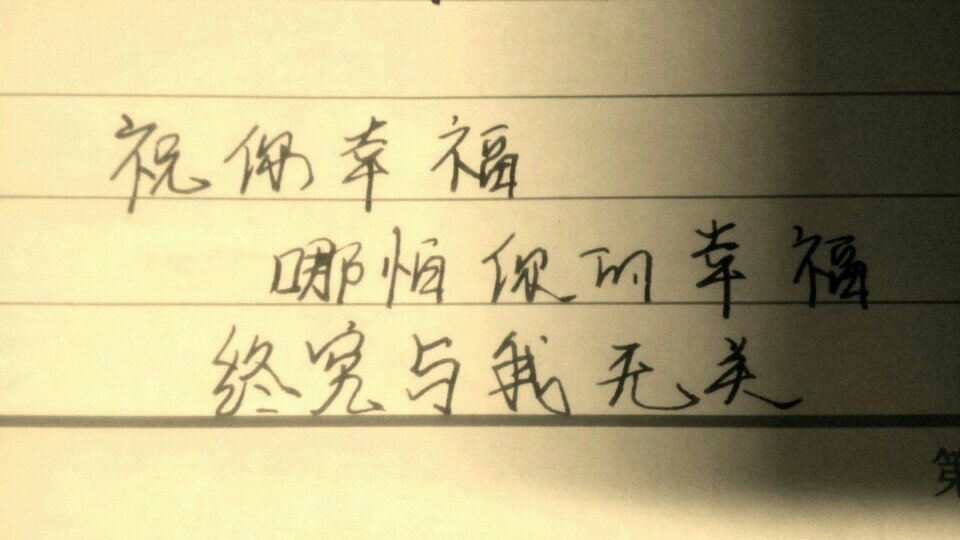 祝你幸福
哪怕你的幸福
终究与我无关
第